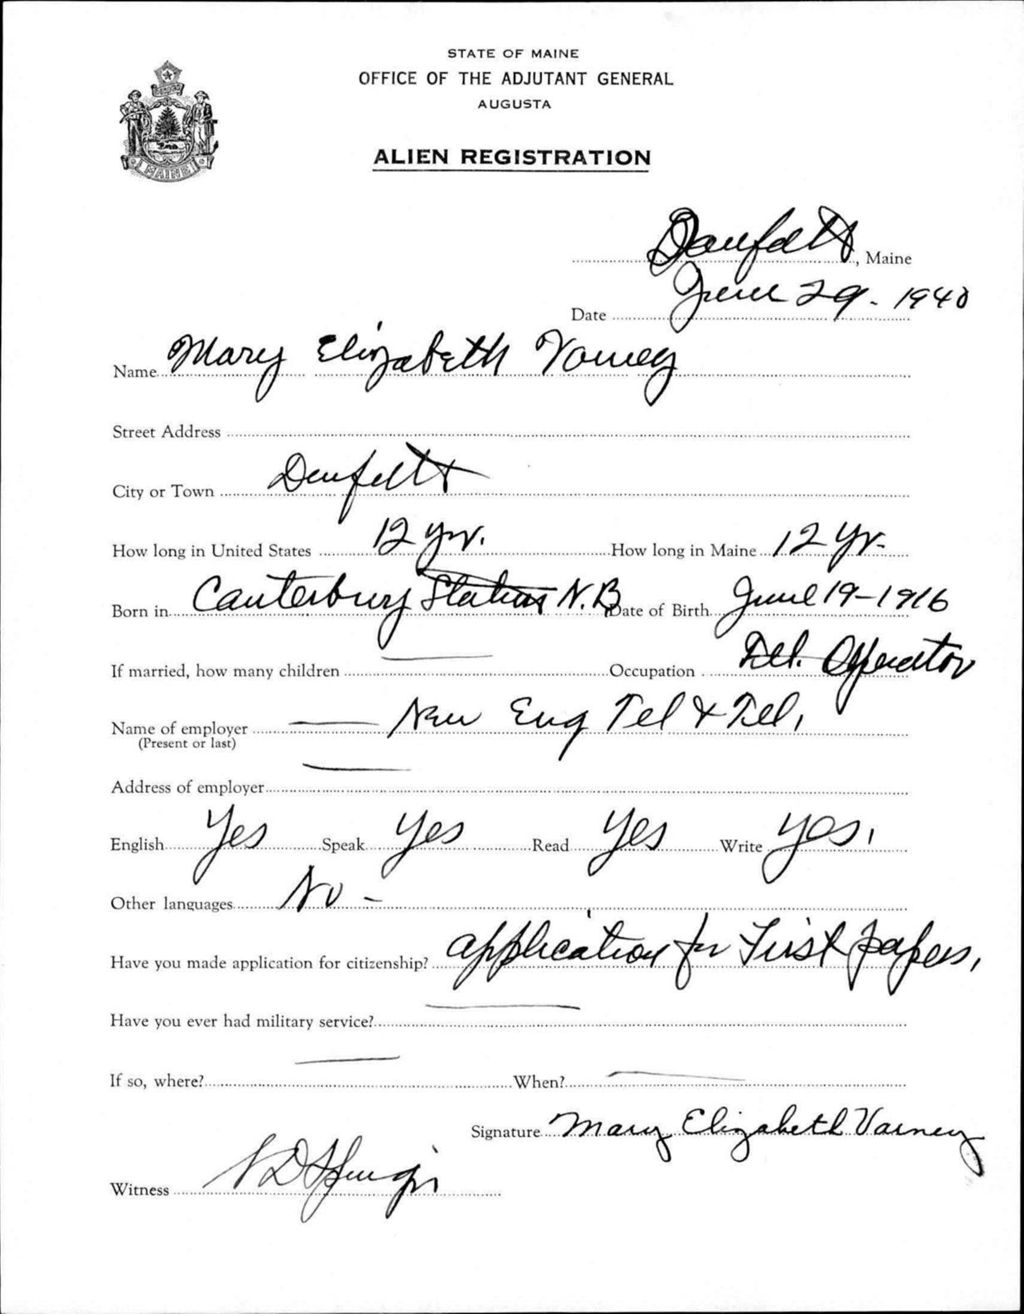 STATE OF MAINE
OFFICE OF THE ADJUTANT GENERAL
AUGUSTA
ALIEN REGISTRATION
MAINE
Danforth, Maine
Date June 29. 1940
Name Mary Elizabeth Varney
Street Address
City or Town Danforth
How long in United States 12 yr. How long in Maine 12 Yr-
Born in Canterbury Station N.B Date of Birth June 19-1916
If married, how many children — Occupation Tel. Operator
Name of employer — New Eng Tel & Tel.
(Present or last)
Address of employer —
English Yes Speak Yes Read Yes Write yes.
Other languages No -
Have you made application for citizenship? application for First papers,
Have you ever had military service? —
If so, where? — When? —
Signature Mary Elizabeth Varney
Witness